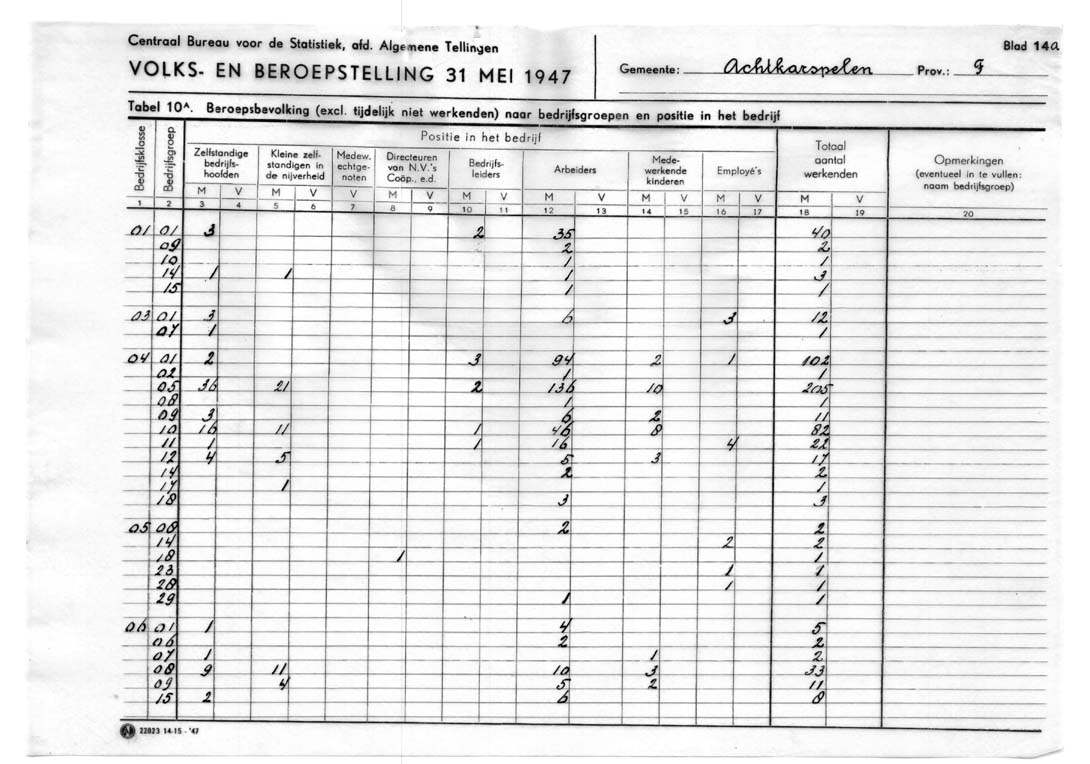 Centraal Bureau voor de Statistiek, afd. Algemene Tellingen
Blad 14a
VOLKS- EN BEROEPSTELLING 31 MEI 1947
Gemeente: Achtkarspelen Prov.: F
Tabel 10A. Beroepsbevolking (excl. tijdelijk niet werkenden) naar bedrijfsgroepen en positie in het bedrijf
Bedrijfsklasse Bedrijfsgroep Positie in het bedrijf Totaal aantal werkenden Opmerkingen (eventueel in te vullen: naam bedrijfsgroep)
Zelfstandige bedrijfs-hoofden Kleine zelf-standigen in de nijverheid Medew. echtge-noten Directeuren van N.V.'s Coöp., e.d. Bedrijfs-leiders Arbeiders Mede-werkende kinderen Employé's
M V M V V M V M V M V M V M V M V
1 2 3 4 5 6 7 8 9 10 11 12 13 14 15 16 17 18 19 20
01 01 3 2 35 40
09 2 2
10 1 1
14 1 1 1 3
15 1 1
03 01 3 6 3 12
07 1 1
04 01 2 3 94 2 1 102
02 1 1
05 36 21 2 136 10 205
08 1 1
09 3 6 2 11
10 16 11 1 46 8 82
11 1 1 16 4 22
12 4 5 5 3 17
14 2 2
17 1 1
18 3 3
05 08 2 2
14 2 2
18 1 1
23 1 1
28 1 1
29 1 1
06 01 1 4 5
06 2 2
07 1 1 2
08 9 11 10 3 33
09 4 5 2 11
15 2 6 8
22823 14-15 - '47